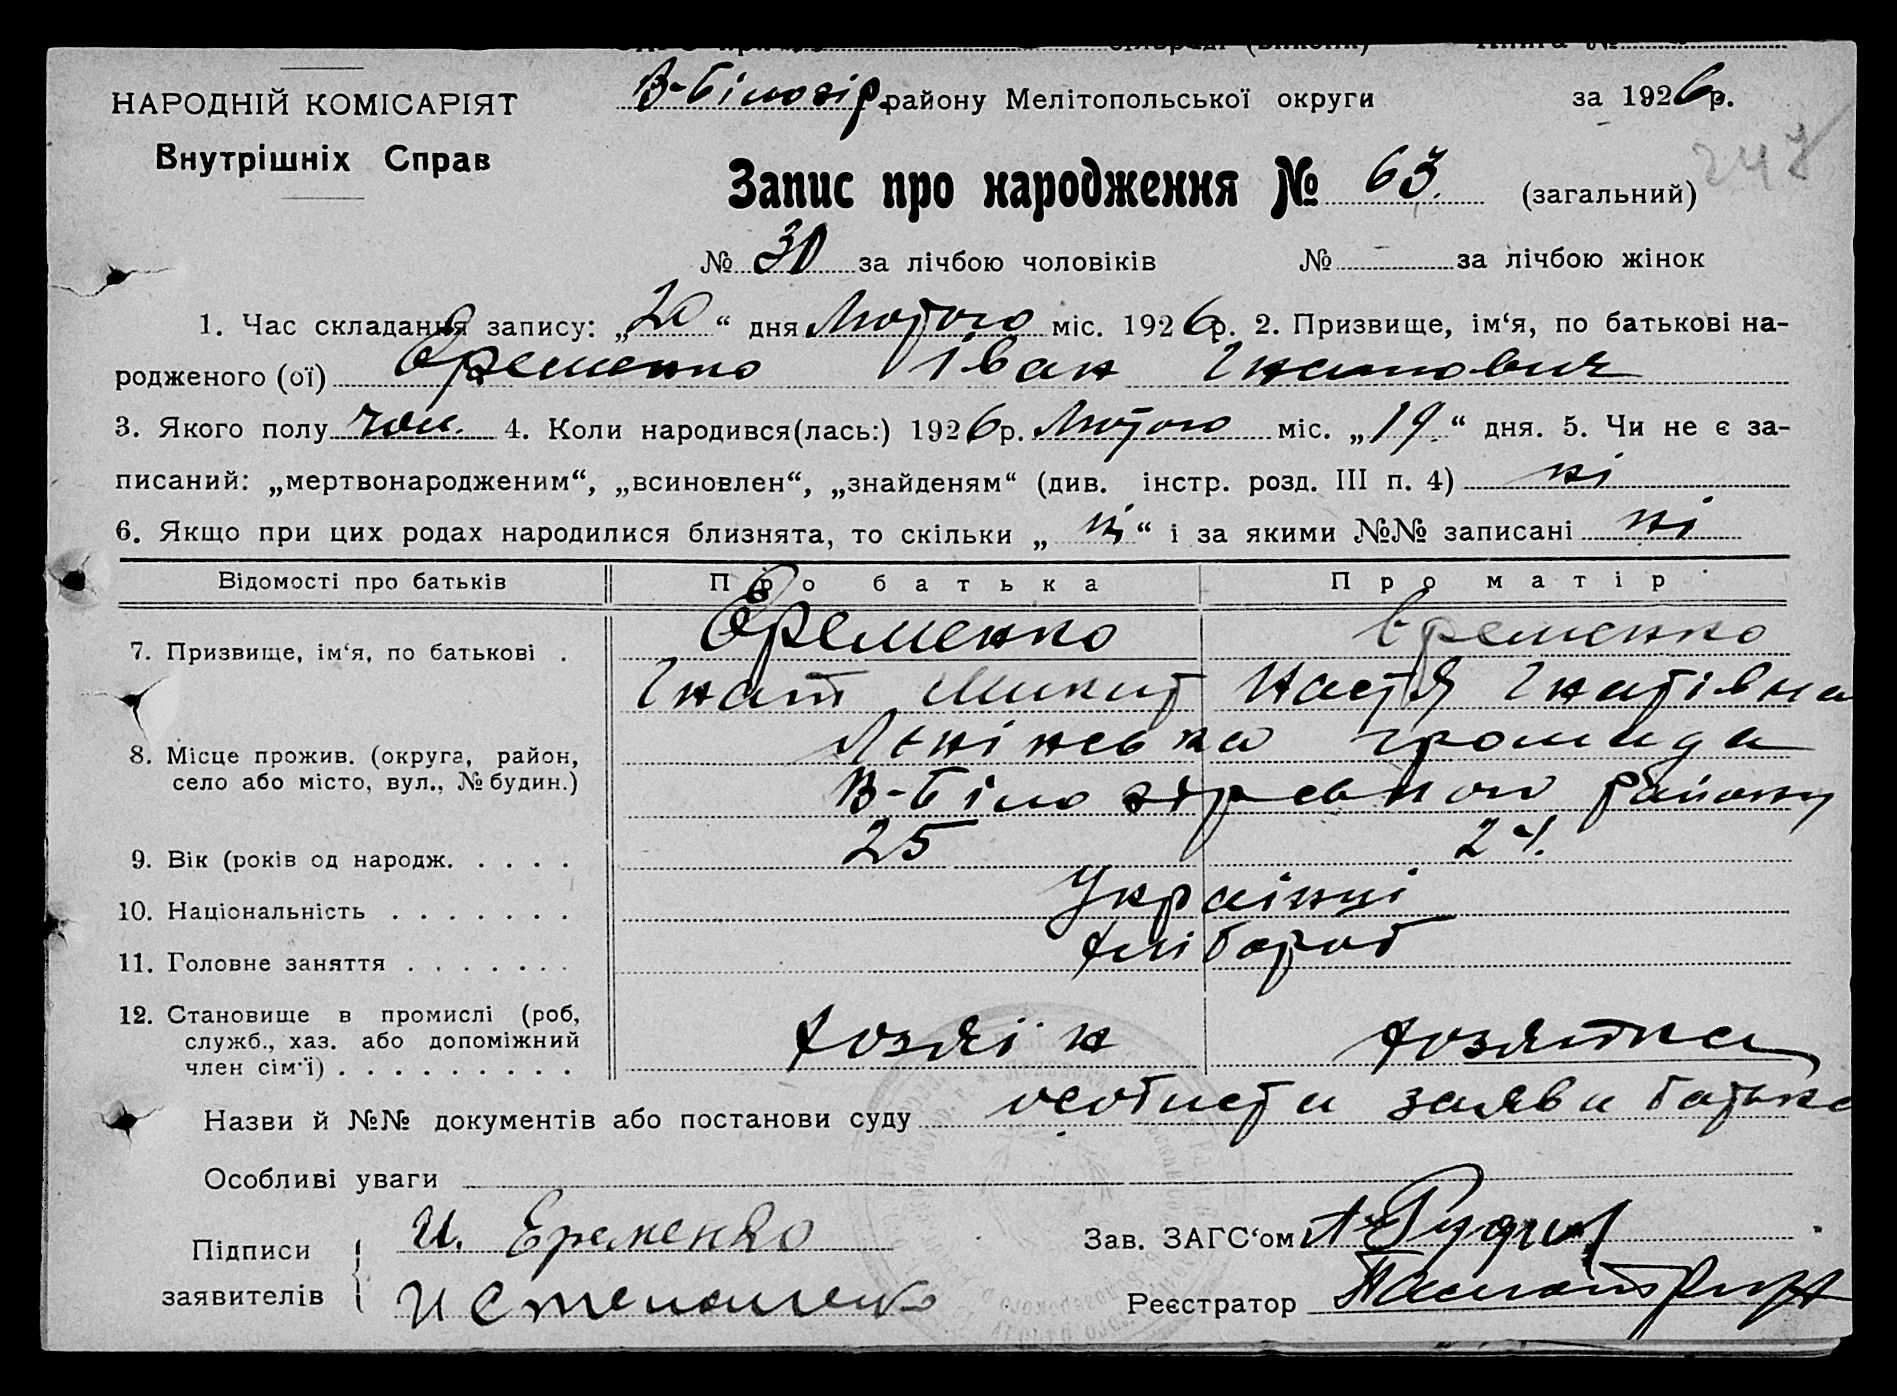 В-Білозір. району Мелітопольської округи за 1926 р.
НАРОДНІЙ КОМІСАРІЯТ
Внутрішніх Справ
247
Запис про народження № 63. (загальний)
№ 30 за лічбою чоловіків № - за лічбою жінок
1. Час складання запису: „20“ дня Лютого міс. 1926 р. 2. Призвище, ім‘я, по батькові на-
родженого (ої) Єременко Іван Гнатович
3. Якого полу чол. 4. Коли народився(лась:) 1926 р. Лютого міс. „19“ дня. 5. Чи не є за-
писаний: „мертвонародженим“, „всиновлен“, „знайденям“ (див. інстр. розд. III п. 4) ні
6. Якщо при цих родах народилися близнята, то скільки „ні“ і за якими №№ записані ні
Відомості про батьків Про батька Про матір
7. Призвище, ім‘я, по батькові . Єременко Єременко
Гнат Микит Настя Гнатівна
8. Місце прожив. (округа, район, Ленінська громада
село або місто, вул., № будин.) В-Білозірського району
9. Вік (років од народж. . . . . 25 24.
10. Національність . . . . . . . Українці
11. Головне заняття . . . . . . . хлібороб
12. Становище в промислі (роб,
служб., хаз. або допоміжний хозяїн хозяйка
член сім‘ї) . . . . . . . . . .
Назви й №№ документів або постанови суду особиста заява батька
Особливі уваги
Підписи И. Еременко Зав. ЗАГС‘ом
заявителів И Степаненко Реєстратор